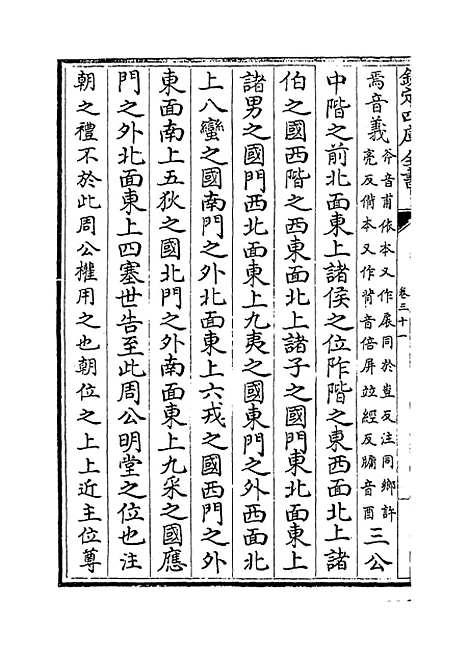 欽定四庫全書
卷三十一
焉音義斧音甫依本又作扆同於豈反注同鄉許
亮反偝本又作背音倍屏並經反牖音酉三公
中階之前北面東上諸侯之位阼階之東西面北上諸
伯之國西階之西東面北上諸子之國門東北面東上
諸男之國門西北面東上九夷之國東門之外西面北
上八蠻之國南門之外北面東上六戎之國西門之外
東面南上五狄之國北門之外南面東上九采之國應
門之外北面東上四塞世告至此周公明堂之位也注
朝之禮不於此周公權用之也朝位之上上近主位尊